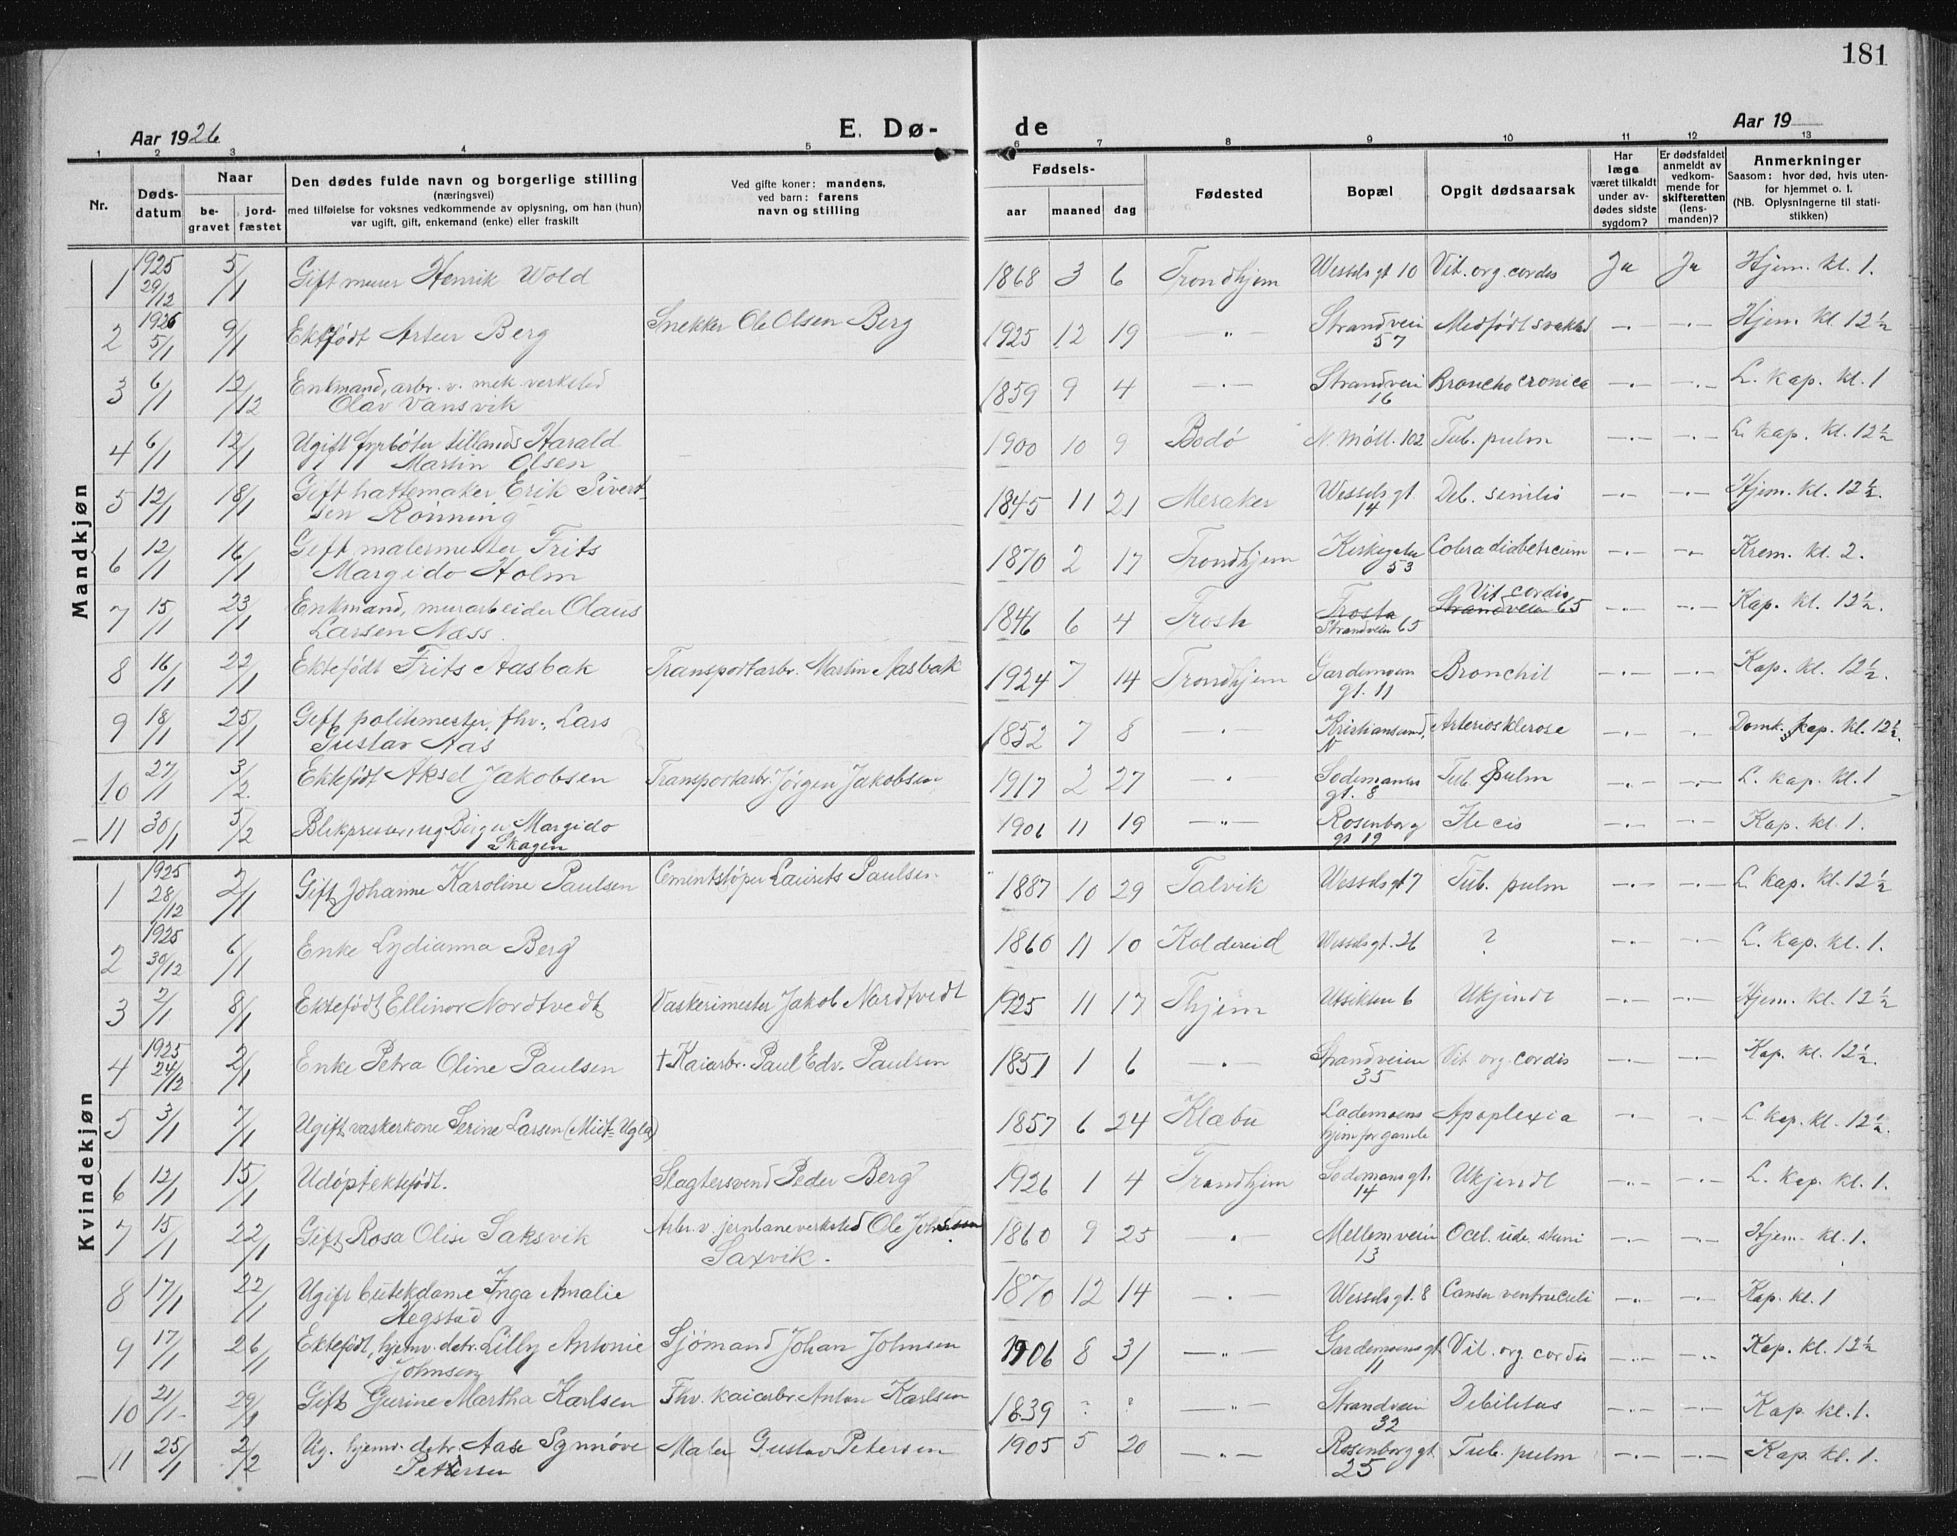 181
Aar 1926
E. Dø-
de
Aar 19
1 2 3 4 5 6 7 8 9 10 11 12 13
Nr.
Døds-
datum
Naar
be-
gravet
jord-
fæstet
Den dødes fulde navn og borgerlige stilling
(næringsvei)
med tilføielse for voksnes vedkommende av oplysning, om han (hun)
var ugift, gift, enkemand (enke) eller fraskilt
Ved gifte koner: mandens,
ved barn: farens
navn og stilling
Fødsels-
aar
maaned
dag
Fødested
Bopæl
Opgit dødsaarsak
Har
læge
været tilkaldt
under av-
dødes sidste
sygdom?
Er dødsfaldet
anmeldt av
vedkom-
mende for
skifteretten
(lens-
manden)?
Anmerkninger
Saasom: hvor død, hvis uten-
for hjemmet o. l.
(NB. Oplysningerne til stati-
stikken)
Mandkjøn
1 1925 29/12 5/1 Gift murer Henrik Wold 1868 3 6 Trondhjem Wesselsgt 10 Vit. org. cordis Ja Ja Hjem. kl. 1.
2 1926 5/1 9/1 Ektefødt Artur Berg Snekker Ole Olsen Berg 1925 12 19 -"- Strandveien 57 Medfødt svakhet -"- -"- Hjem. kl 12 ½
3 6/1 12/1 Enkmand, arbr. v. mek. verksted
Olav Vansvik 1859 9 4 -"- Strandveien 16 Broncho cronica -"- -"- L. kap. kl. 1
4 6/1 12/1 Ugift fyrbøter tillands Harald
Martin Olsen 1900 10 9 Bodö N. Möll. 102 Tub. pulm -"- -"- L. kap. kl. 12 ½
5 12/1 18/1 Gift hattemaker Erik Sivert-
sen Rönning 1845 11 21 Meraker Wesselsgt. 14 Deb. senilis -"- -"- Hjem. kl. 12 ½.
6 12/1 16/1 Gift malermester Frits
Margido Holm 1870 2 17 Trondhjem Kirkegaten 53 Coma diabeticum -"- -"- Krem. kl. 2.
7 15/1 23/1 Enkmand, murarbeider Olaus
Larsen Næss. 1846 6 4 Frosta Strandveien 65 Vit. cordis -"- -"- Kap. kl. 12 ½.
8 16/1 22/1 Ektefødt Frits Aasbak Transportarbr. Martin Aasbak 1924 7 14 Trondhjem Gardemoens gt. 11 Bronchit -"- -"- Kap. kl. 12 ½.
9 18/1 25/1 Gift politimester, fhv., Lars
Gustav Aas 1852 7 8 -"- Kristiansund, N Arteriosklerose -"- -"- Domk. kap. kl. 12 ½.
10 27/1 3/2 Ektefødt Aksel Jakobsen Transportarbr. Jörgen Jakobsen 1917 2 27 -"- Sodemanns gt. 8 Tub. pulm -"- -"- L. kap. kl. 1
11 30/1 5/2 Blikpresser, ug Birger Margido
Skagen 1901 11 19 -"- Rosenborg gt 19 -"- -"- Kap. kl. 1.
Kvindekjøn
1 1925 28/12 2/1 Gift Johanne Karoline Paulsen Cementstøper Laurits Paulsen 1887 10 29 Talvik Wesselsgt 7 Tub. pulm -"- -"- L. kap. kl. 12 ½
2 1925 30/12 6/1 Enke Lydianna Berg 1860 11 10 Koldereid Wesselsgt. 26 ? -"- -"- L. kap. kl. 1.
3 2/1 8/1 Ektefødt Ellinor Nordtvedt Vaskerimester Jakob Nordtvedt 1925 11 17 Thjem Utsikten 6 Ukjendt -"- -"- Hjem. kl. 12 ½
4 1925 24/12 2/1 Enke Petra Oline Paulsen † Kaiarbr. Paul Edv. Paulsen 1851 1 6 -"- Strandveien 35 Vit. org. cordis -"- -"- Kap. kl. 12 ½.
5 3/1 7/1 Ugift vaskerkone Serine Larsen (Midt-Ugla) 1857 6 24 Klæbu Lademoens hjem for gamle Apoplexia -"- -"- L. kap. kl. 12 ½.
6 12/1 15/1 Udøpt ektefødt. Slagtersvend Peder Berg 1926 1 4 Trondhjem Sodemansgt. 14 Ukjendt -"- -"- L. kap. kl. 1.
7 15/1 22/1 Gift Rosa Olise Saksvik Arbr. v. jernbaneverksted Ole Johnsen
Saxvik. 1860 9 25 -"- Mellemveien 13 -"- -"- Hjem. kl. 1.
8 17/1 22/1 Ugift butikdame Inga Amalie
Hegstad 1870 12 14 -"- Wesselsgt. 8 Cancer ventriculi -"- -"- Kap. kl. 1
9 17/1 26/1 Ektefødt, hjemv. datr. Lilly Antonie
Johnsen Sjømand Johan Johnsen 1906 8 31 -"- Gardemoensgt 11 Vit. org. cordis -"- -"- Kap. kl. 12 ½
10 21/1 29/1 Gift Gurine Martha Karlsen Fhv. kaiarbr. Anton Karlsen 1839 ? ? -"- Strandveien 32 Debilitas -"- -"- Kap. kl. 1.
11 25/1 2/2 Ug. hjemv. datr. Aase Synnöve
Petersen Maler Gustav Petersen 1905 5 20 -"- Rosenborggt 25 Tub. pulm -"- -"- Kap. kl. 1.